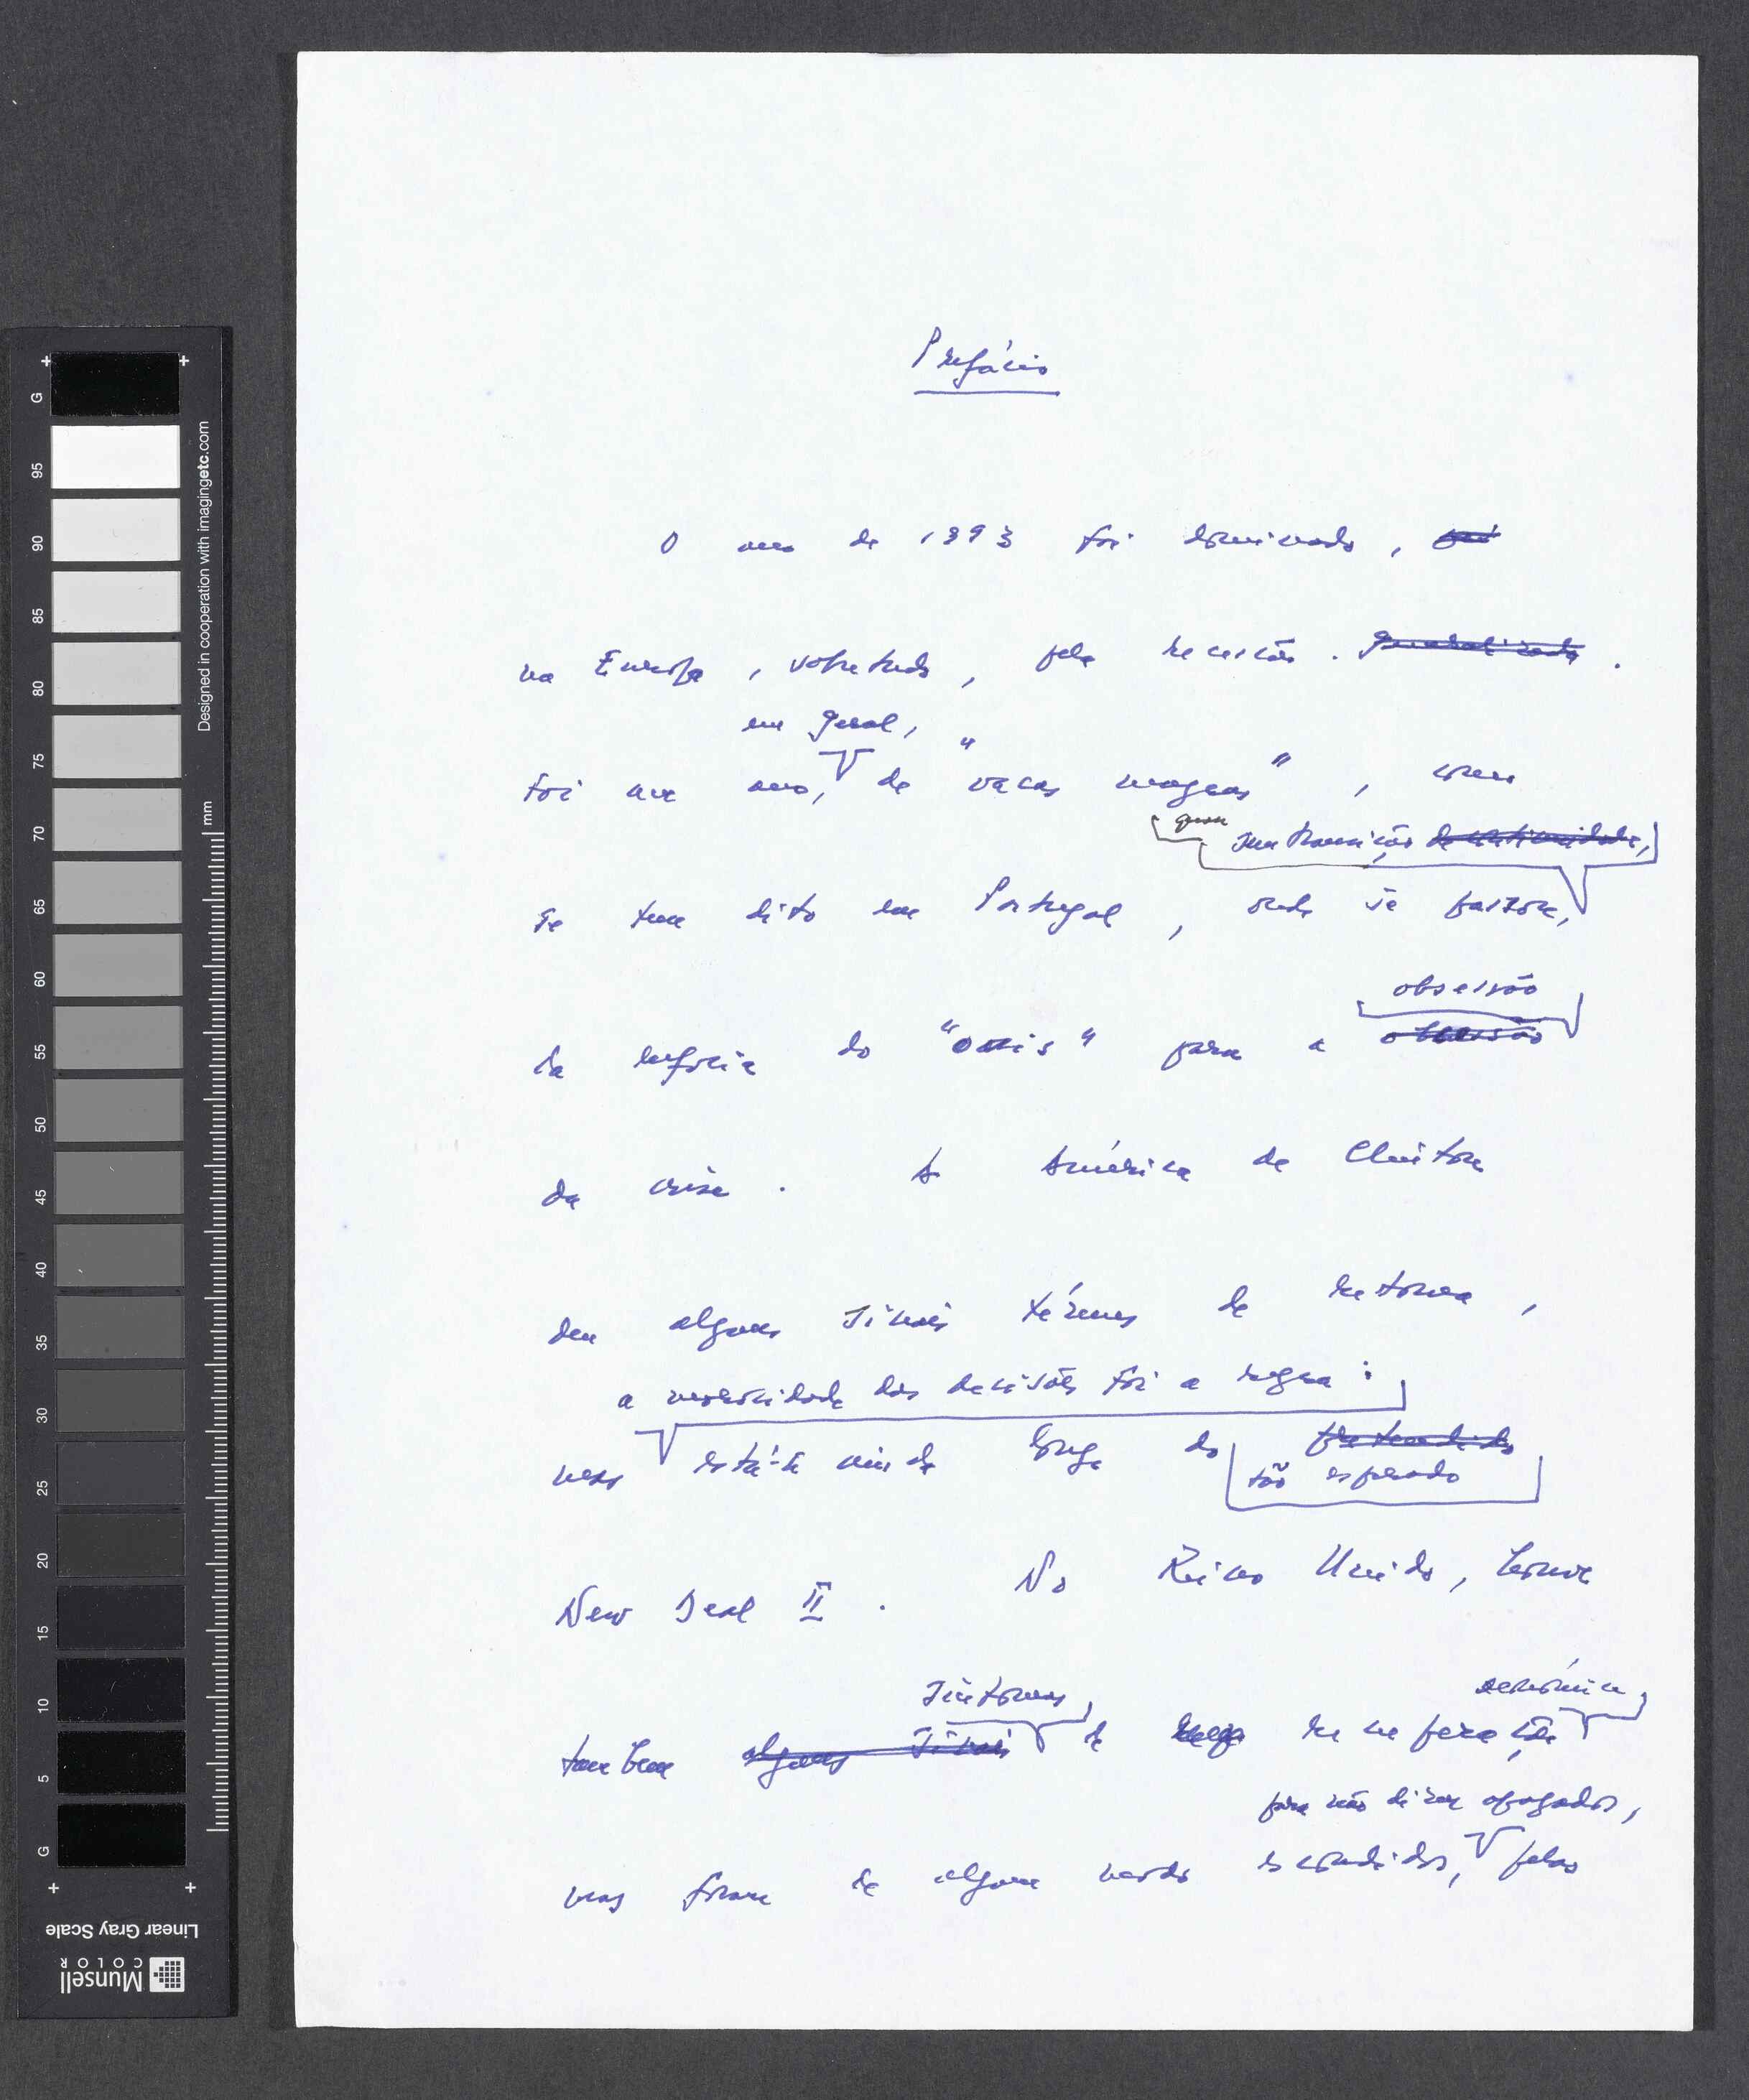 Prefácio
O ano de 1993 foi dominado,
na Europa, sobretudo, pela recessão. generalizada.
em geral,
Foi um ano, de "vacas magras", como
quase sem transição de continuidade,
se tem dito em Portugal, onde se passou,
obsessão
da euforia do "oásis" para a obsessão
da crise. A América de Clinton
deu alguns sinais ténues de retoma,
a morosidade das decisões foi a regra:
mas está-se ainda longe do pretendido
tão esperado
New Deal II. No Reino Unido, houve
sintomas, económica,
também alguns sinais de recuperação
para não dizer apagados,
mas foram de algum modo escondidos, pelas
G 95 90 85 80 75 70 65 60 55 50 45 40 35 30 25 20 15 10 5 G
mm
Designed in cooperation with imagingetc.com
Linear Gray Scale
Munsell
COLOR